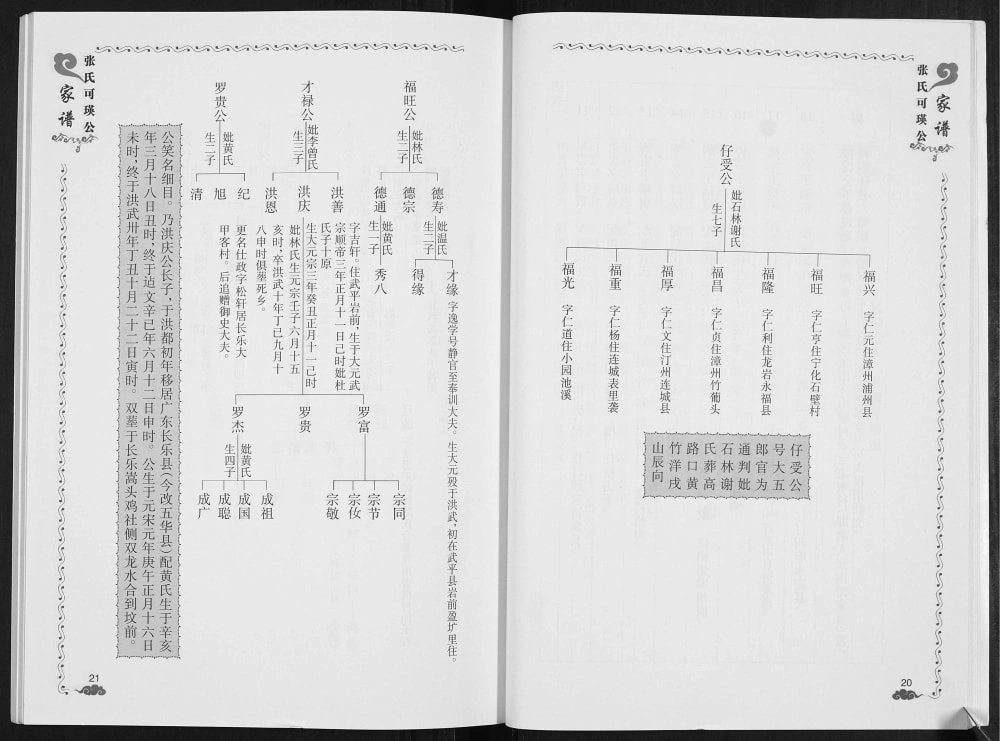 张氏可瑛公
家谱
仔受公
妣石林谢氏
生七子
福兴 字仁元住漳州浦州县
福旺 字仁亨住宁化石壁村
福隆 字仁利住龙岩永福县
福昌 字仁贞住漳州竹葡头
福厚 字仁文住汀州连城县
福重 字仁杨住连城表里袭
福光 字仁道住小园池溪
仔受公
号大五
郎官为
通判妣
石林谢
氏葬高
路口黄
竹洋戌
山辰向
20
福旺公
妣林氏
生二子
德寿
德宗
德通
妣温氏
生二子
妣黄氏
生一子
才缘
得缘
秀八
字逸学号静官至奉训大夫。生大元殁于洪武,初在武平县岩前盈圹里住。
才禄公
妣李曾氏
生三子
洪善
洪庆
洪恩
字吉轩。住武平岩前,生于大元武
宗顺帝三年正月十一日己时妣杜
氏子十原
生大元宗三年癸丑正月十一己时
妣林氏生元宗壬子六月十五
亥时,卒洪武十年丁已九月十
八申时俱葬死乡。
罗富
罗贵
罗杰
宗同
宗节
宗攸
宗敬
妣黄氏
生四子
成祖
成国
成聪
成广
罗贵公
妣黄氏
生二子
纪
旭
清
更名仕政字松轩居长乐大
甲客村。后追赠御史大夫。
公笑名细目。乃洪庆公长子,于洪都初年移居广东长乐县(今改五华县)配黄氏生于辛亥
年三月十八日丑时,终于边文辛已年六月十二日申时。公生于元宋元年庚午正月十六日
未时,终于洪武卅年丁丑十月二十二日寅时。双墓于长乐嵩头鸡社侧双龙水合到坟前。
张氏可瑛公
家谱
21